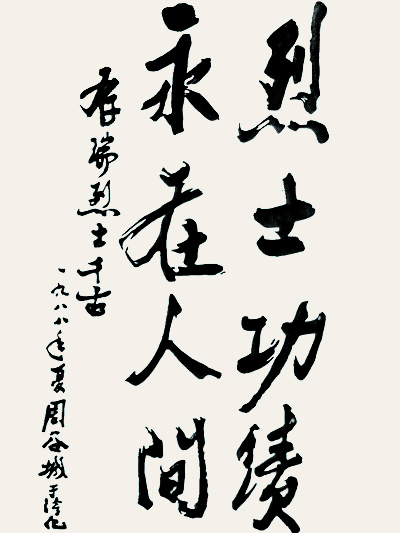 烈士功绩
永在人间
存瑞烈士千古
一九八八年夏周谷城